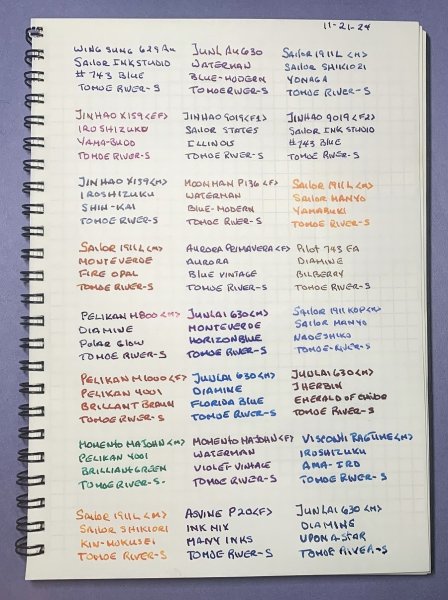 11-21-24
WING SUNG 629 Au
SAILOR INKSTUDIO
# 743 BLUE
TOMOE RIVER-S
JUNL Au 630
WATERMAN
BLUE-MODERN
TOMOE RIVER-S
SAILOR 1911L <M>
SAILOR SHIKIOZI
YONAGA
TOMOE RIVER-S
JINHAO X159 <EF>
IROSHIZUKU
YAMA-BUDO
TOMOE RIVER-S
JINHAO 9019 <F1>
SAILOR STATES
ILLINOIS
TOMOE RIVER-S
JINHAO 9019 <F2>
SAILOR INK STUDIO
#743 BLUE
TOMOE RIVER-S
JINHAO X159 <M>
IROSHIZUKU
SHIN-KAI
TOMOE RIVER-S
MOONMAN P136 <F>
WATERMAN
BLUE-MODERN
TOMOE RIVER-S
SAILOR 1911L <M>
SAILOR MANYO
YAMABUKI
TOMOE RIVER-S
SAILOR 1911L <M>
MONTEVERDE
FIRE OPAL
TOMOE RIVER-S
AURORA PRIMAVERA <F>
AURORA
BLUE VINTAGE
TOMOE RIVER-S
PILOT 743 FA
DIAMINE
BILBERRY
TOMOE RIVER-S
PELIKAN M800 <M>
DIAMINE
POLAR GLOW
TOMOE RIVER-S
JUNLAI 630 <M>
MONTEVERDE
HORIZON BLUE
TOMOE RIVER-S
SAILOR 1911 KOP <M>
SAILOR MANYO
NADESHIKO
TOMOE-RIVER-S
PELIKAN M1000 <F>
PELIKAN 4001
BRILLIANT BROWN
TOMOE RIVER-S
JUNLAI 630 <M>
DIAMINE
FLORIDA BLUE
TOMOE RIVER-S
JUNLAI 630 <M>
J HERBIN
EMERALD OF CHIVOR
TOMOE RIVER-S
MOMENTO MAJOHN <M>
PELIKAN 4001
BRILLIANT GREEN
TOMOE RIVER-S.
MOMENTO MAJOHN <F>
WATERMAN
VIOLET-VINTAGE
TOMOE RIVER-S
VISCONTI RAGTIME <M>
IROSHIZUKU
AMA-IRO
TOMOE RIVER-S
SAILOR 1911L <M>
SAILOR SHIKIORI
KIN-MOKUSEI
TOMOE RIVER-S
ASVINE P20 <F>
INK MIX
MANY INKS
TOMOE RIVER-S
JUNLAI 630 <M>
DIAMINE
UPON A-STAR
TOMOE RIVER-S